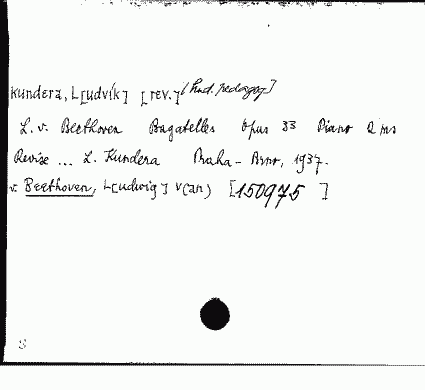 Kundera, L[udvík] [rev.] [hud. pedagog]
L. v. Beethoven Bagatelles Opus 33 Piano 2 ms
Revise ... L. Kundera Praha - Brno, 1937.
v. Beethoven, L[udwig] v(an) [150975 ]
S